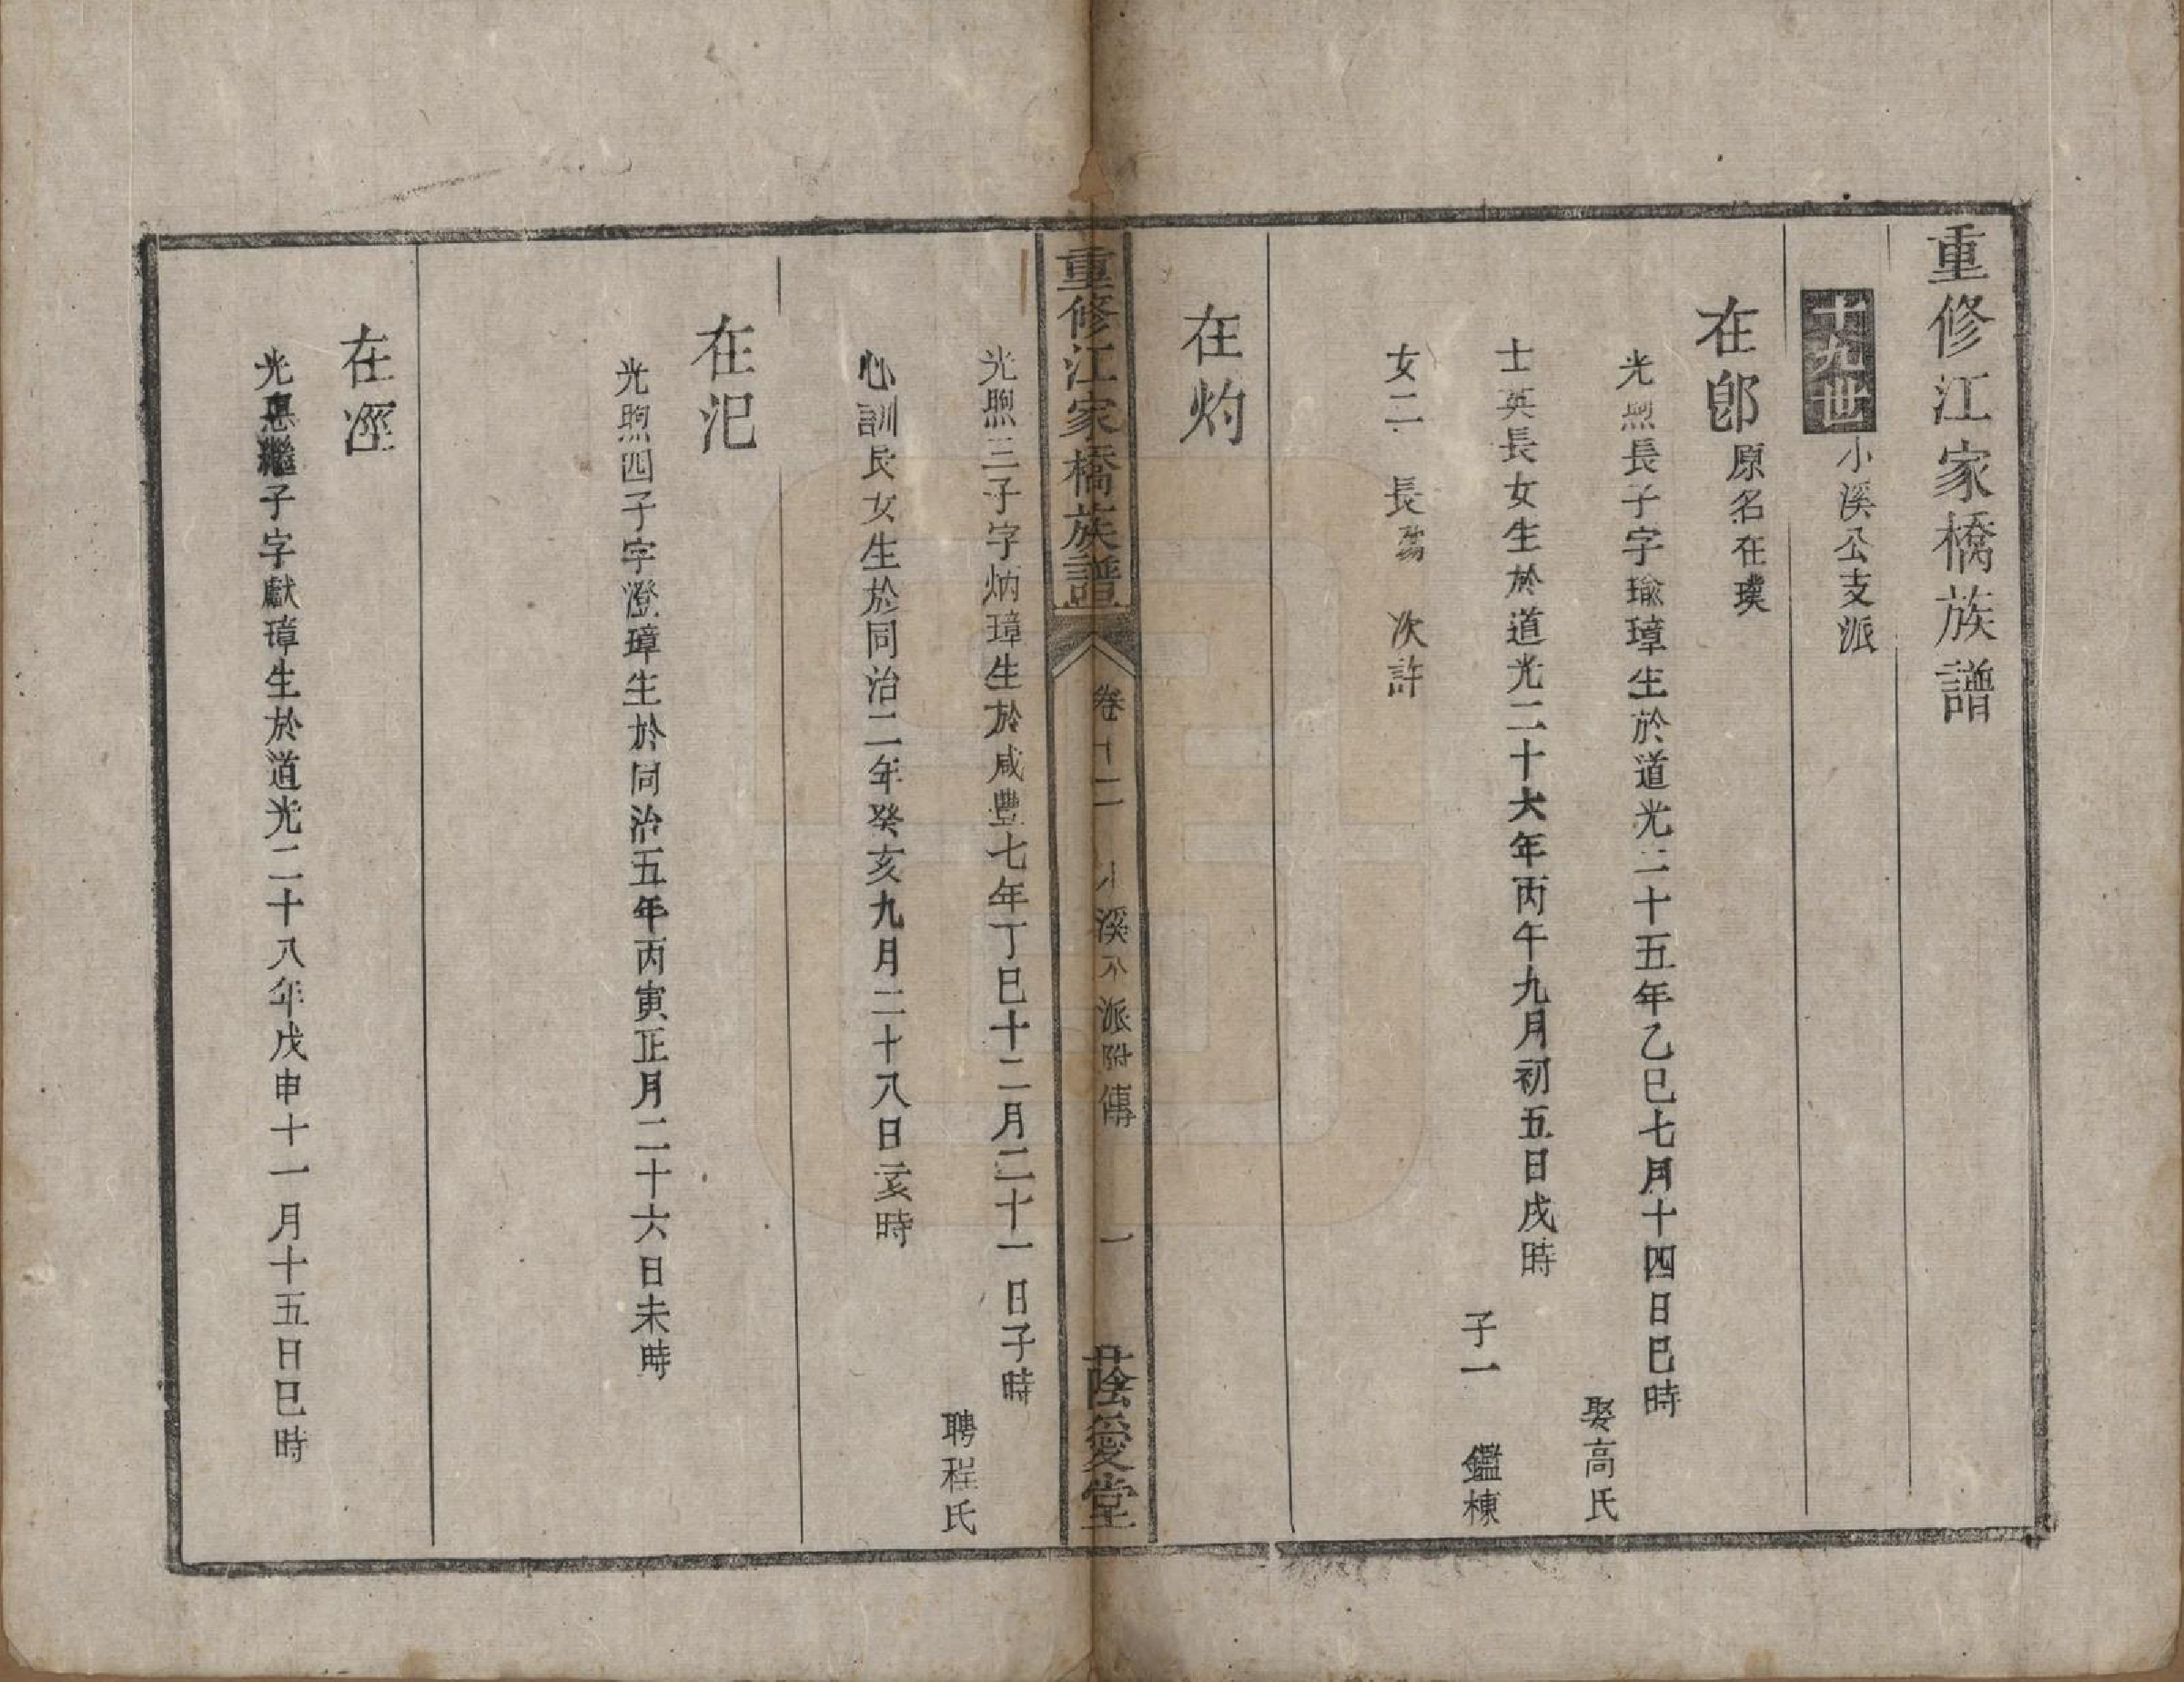 重修江家橋族譜
十九世 小溪公支派
在郎 原名在璞
光煦長子字瑜璋生於道光二十五年乙巳七月十四日巳時
娶高氏
士英長女生於道光二十六年丙午九月初五日戌時
子一 鑑棟
女二 長殤 次許
在灼
重修江家橋族譜 卷十二 小溪公派附傳 一 蔭愛堂
光煦三子字炳璋生於咸豐七年丁巳十二月二十一日子時
聘程氏
心訓長女生於同治二年癸亥九月二十八日亥時
在汜
光煦四子字澄璋生於同治五年丙寅正月二十六日未時
在涇
光惠繼子字獻璋生於道光二十八年戊申十一月十五日巳時